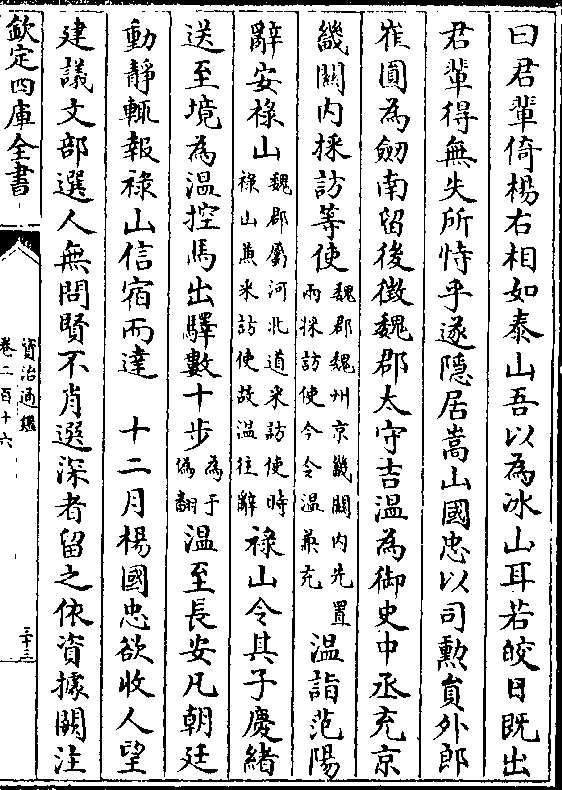 曰君輩倚楊右相如泰山吾以為冰山耳若皎日既出
君輩得無失所恃乎遂隱居嵩山國忠以司勲員外郎
崔圓為劒南留後徵魏郡太守吉温為御史中丞充京
畿關内採訪等使魏郡魏州京畿關内先置兩採訪使今令温兼充温詣范陽
辭安祿山魏郡屬河北道采訪使時祿山兼采訪使故温往辭祿山令其子慶緒
送至境為温控馬出驛數十步為于偽翻温至長安凡朝廷
動靜輒報祿山信宿而達　十二月楊國忠欲收人望
建議文部選人無問賢不肖選深者留之依資據闕注
欽定四庫全書
資治通鑑
卷二百十六
三十三